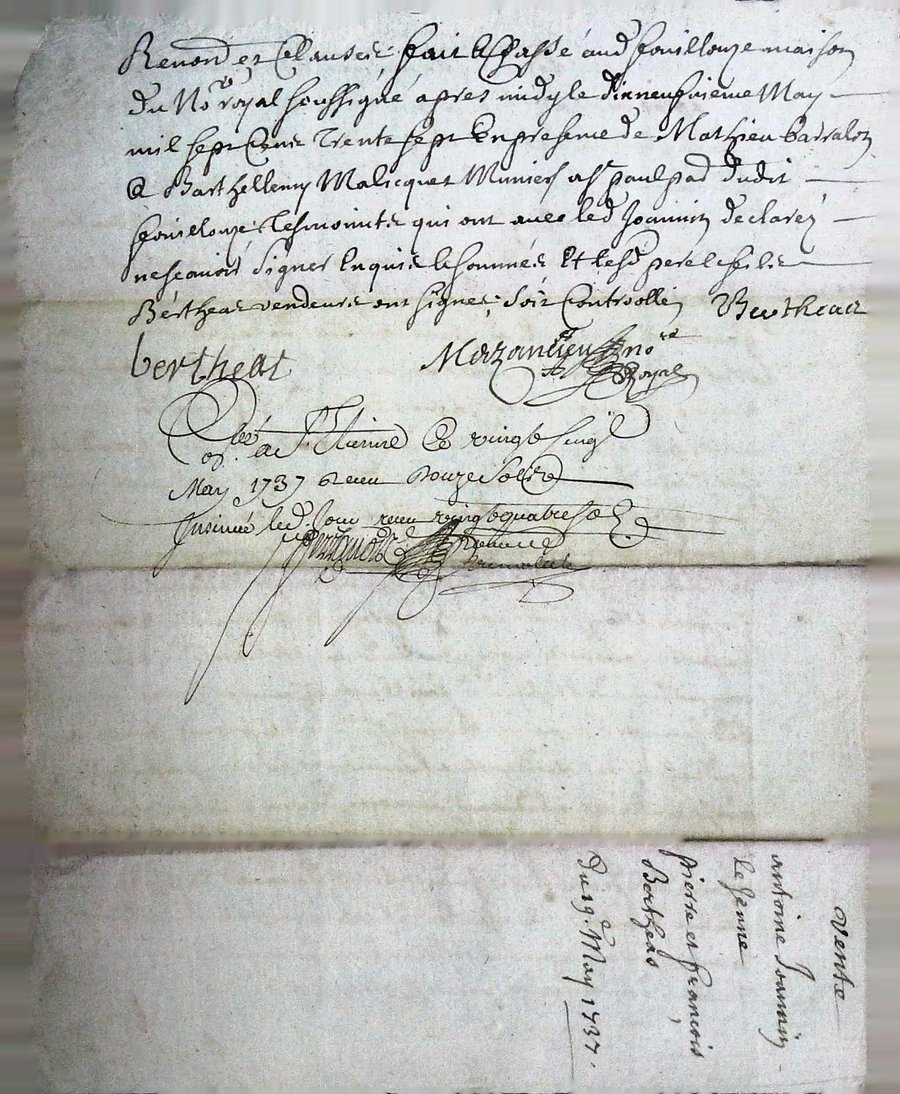 Renon et Clauses: fait & Passé aud fouillouze maison
du No.re royal soussigné apres midy le dixneufvieme May
mil sept Cent Trente sept En presence de Mathieu barralon
& Barthellemy Malicquet dudit
fouillouze tesmoints qui ont avec led Joannin declaré
ne scavoir Signer Enquis & sommés Et lesd pere & fils
Bertheas vendeurs ont signés; soit Controllé Bertheas
bertheas Mazandieu no.re Royal
a St Etienne Ce vingt Cinq
May 1737 receu Douze Sols
Insinué led. Jour receu vingt quatre so
Vente
antoine Joannin
le Jeune
pierre et francois
Bertheas
du 19. May 1737.